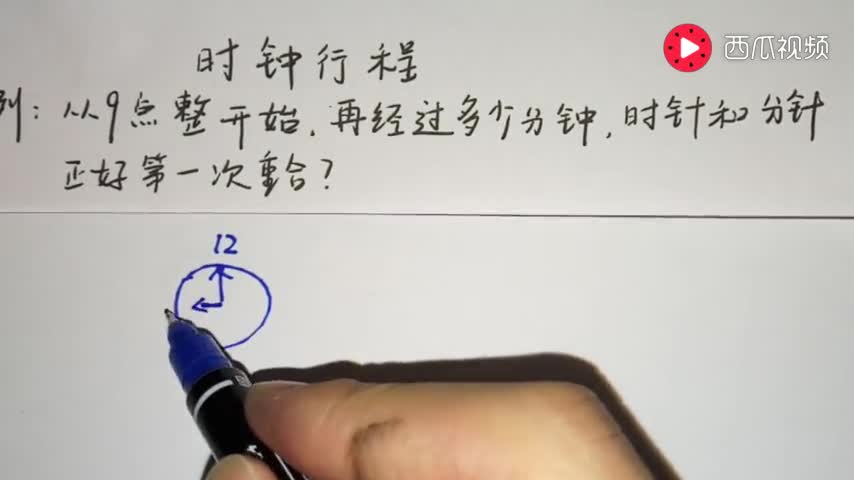 西瓜视频
时钟行程
例：从9点整开始，再经过多少分钟，时针和分针
正好第一次重合？
12